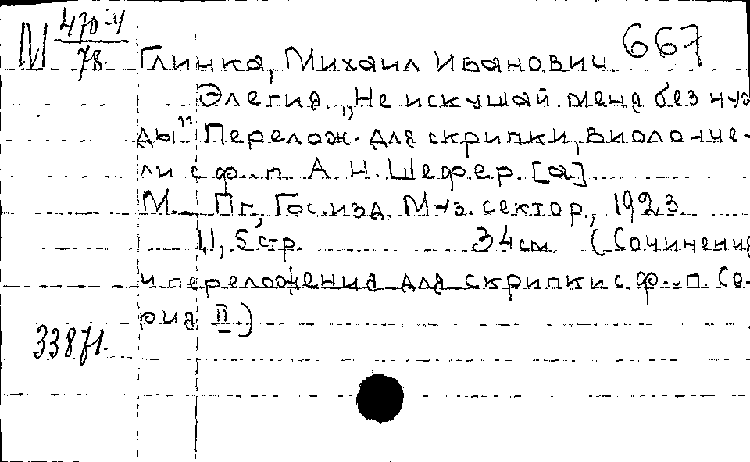 М 470-4/78
Глинка, Михаил Иванович 667
Элегия „Не искушай меня без нуж
ды" Перелож. для скрипки, виолонче-
ли с ф.-п. А. Н. Шефер. [а]
М. Пг., Гос. изд. Муз. сектор, 1923
11, 5 стр. 34 см (Сочинения
и переложения для скрипки с ф.-п. Се-
рия II.)
33871.